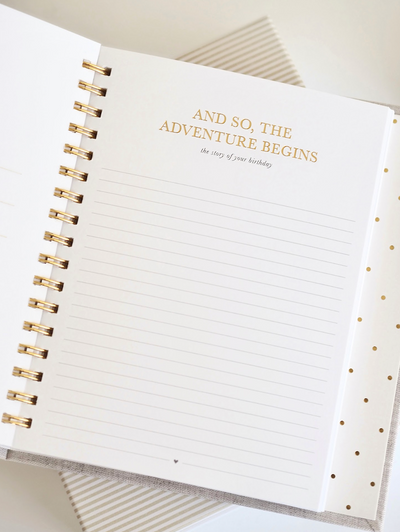 AND SO, THE
ADVENTURE BEGINS
the story of your birthday